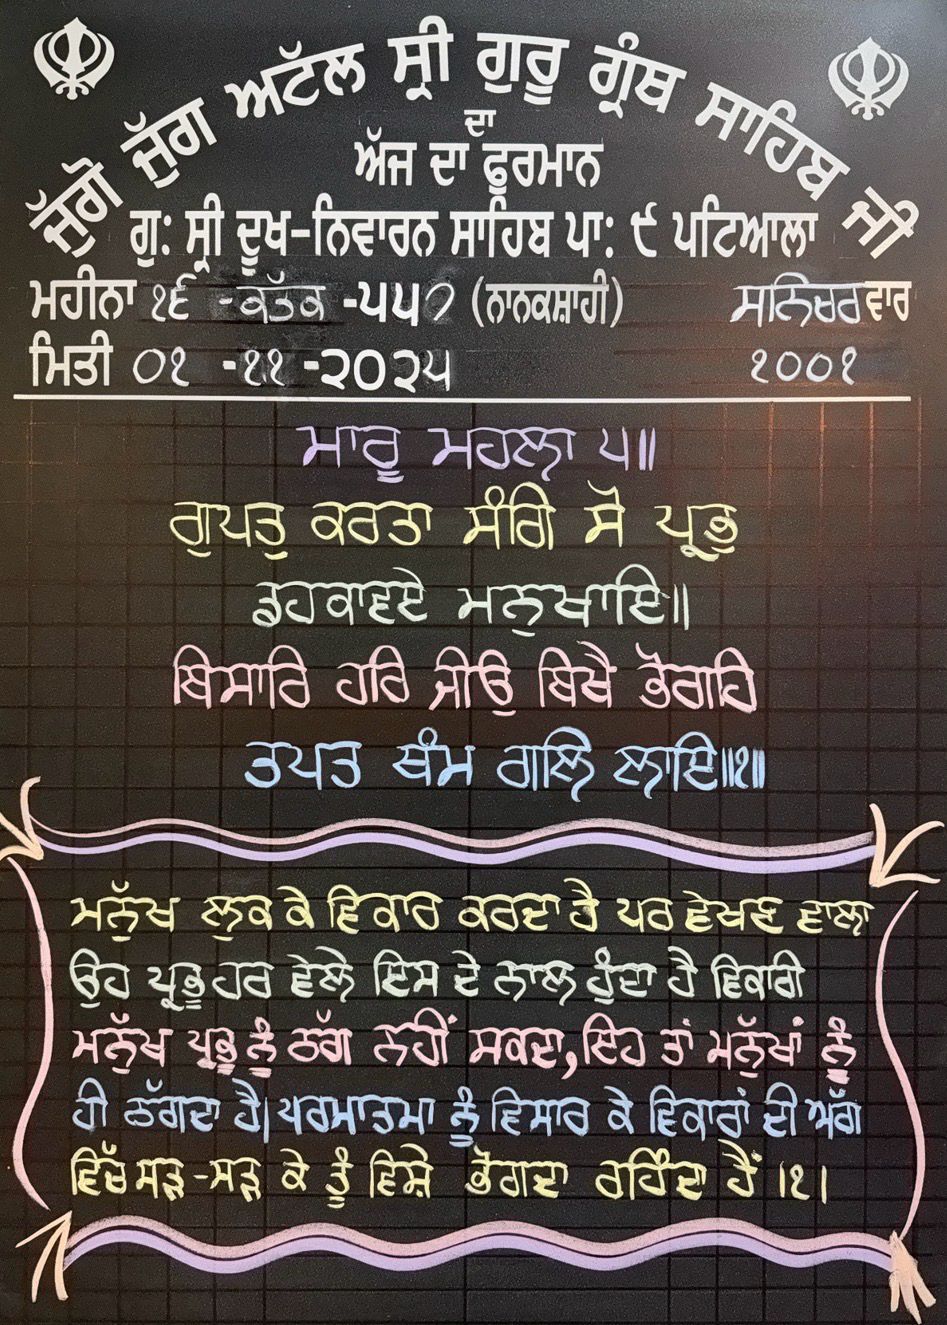 ਜੁੱਗੋ ਜੁੱਗ ਅਟੱਲ ਸ੍ਰੀ ਗੁਰੂ ਗ੍ਰੰਥ ਸਾਹਿਬ ਜੀ
ਦਾ
ਅੱਜ ਦਾ ਫੁਰਮਾਨ
ਗੁ: ਸ੍ਰੀ ਦੂਖ-ਨਿਵਾਰਨ ਸਾਹਿਬ ਪਾ: ੯ ਪਟਿਆਲਾ
ਮਹੀਨਾ ੧੬ -ਕੱਤਕ -੫੫੭ (ਨਾਨਕਸ਼ਾਹੀ) ਸਨਿਚਰਵਾਰ
ਮਿਤੀ ੦੧ -੧੧ -੨੦੨੫ ੧੦੦੧
ਮਾਰੂ ਮਹਲਾ ੫॥
ਗੁਪਤੁ ਕਰਤਾ ਸੰਗਿ ਸੋ ਪ੍ਰਭੁ
ਡਹਕਾਵਏ ਮਨੁਖਾਇ॥
ਬਿਸਾਰਿ ਹਰਿ ਜੀਉ ਬਿਖੈ ਭੋਗਹਿ
ਤਪਤ ਥੰਮ ਗਲਿ ਲਾਇ॥੧॥
ਮਨੁੱਖ ਲੁਕ ਕੇ ਵਿਕਾਰ ਕਰਦਾ ਹੈ ਪਰ ਵੇਖਣ ਵਾਲਾ
ਉਹ ਪ੍ਰਭੂ ਹਰ ਵੇਲੇ ਇਸ ਦੇ ਨਾਲ ਹੁੰਦਾ ਹੈ ਵਿਕਾਰੀ
ਮਨੁੱਖ ਪ੍ਰਭੂ ਨੂੰ ਠੱਗ ਨਹੀਂ ਸਕਦਾ,ਇਹ ਤਾਂ ਮਨੁੱਖਾਂ ਨੂੰ
ਹੀ ਠੱਗਦਾ ਹੈ। ਪਰਮਾਤਮਾ ਨੂੰ ਵਿਸਾਰ ਕੇ ਵਿਕਾਰਾਂ ਦੀ ਅੱਗ
ਵਿੱਚ ਸੜ-ਸੜ ਕੇ ਤੂੰ ਵਿਸ਼ੇ ਭੋਗਦਾ ਰਹਿੰਦਾ ਹੈਂ ।੧।